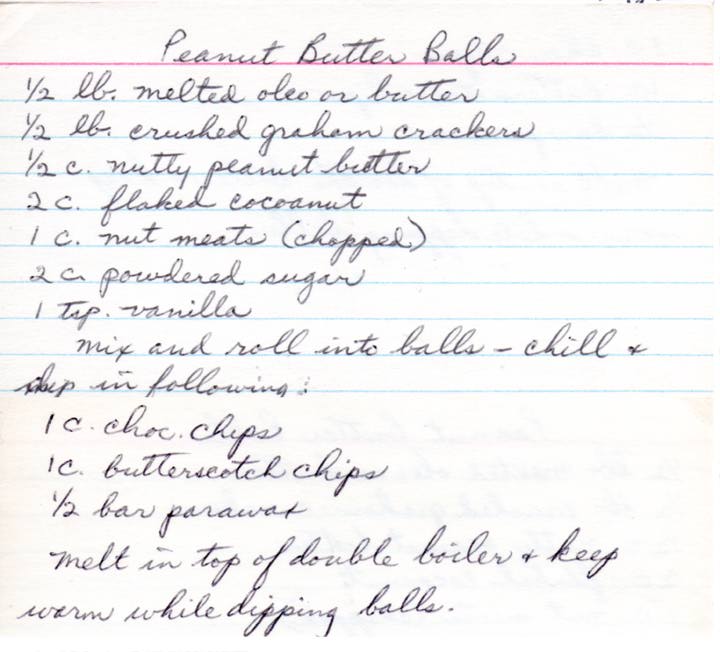 Peanut Butter Balls
1/2 lb. melted oleo or butter
1/2 lb. crushed graham crackers
1/2 c. nutty peanut butter
2 c. flaked cocoanut
1 c. nut meats (chopped)
2 c. powdered sugar
1 tsp. vanilla
mix and roll into balls - chill &
dip in following:
1 c. choc. chips
1 c. butterscotch chips
1/2 bar parawax
melt in top of double boiler & keep
warm while dipping balls.